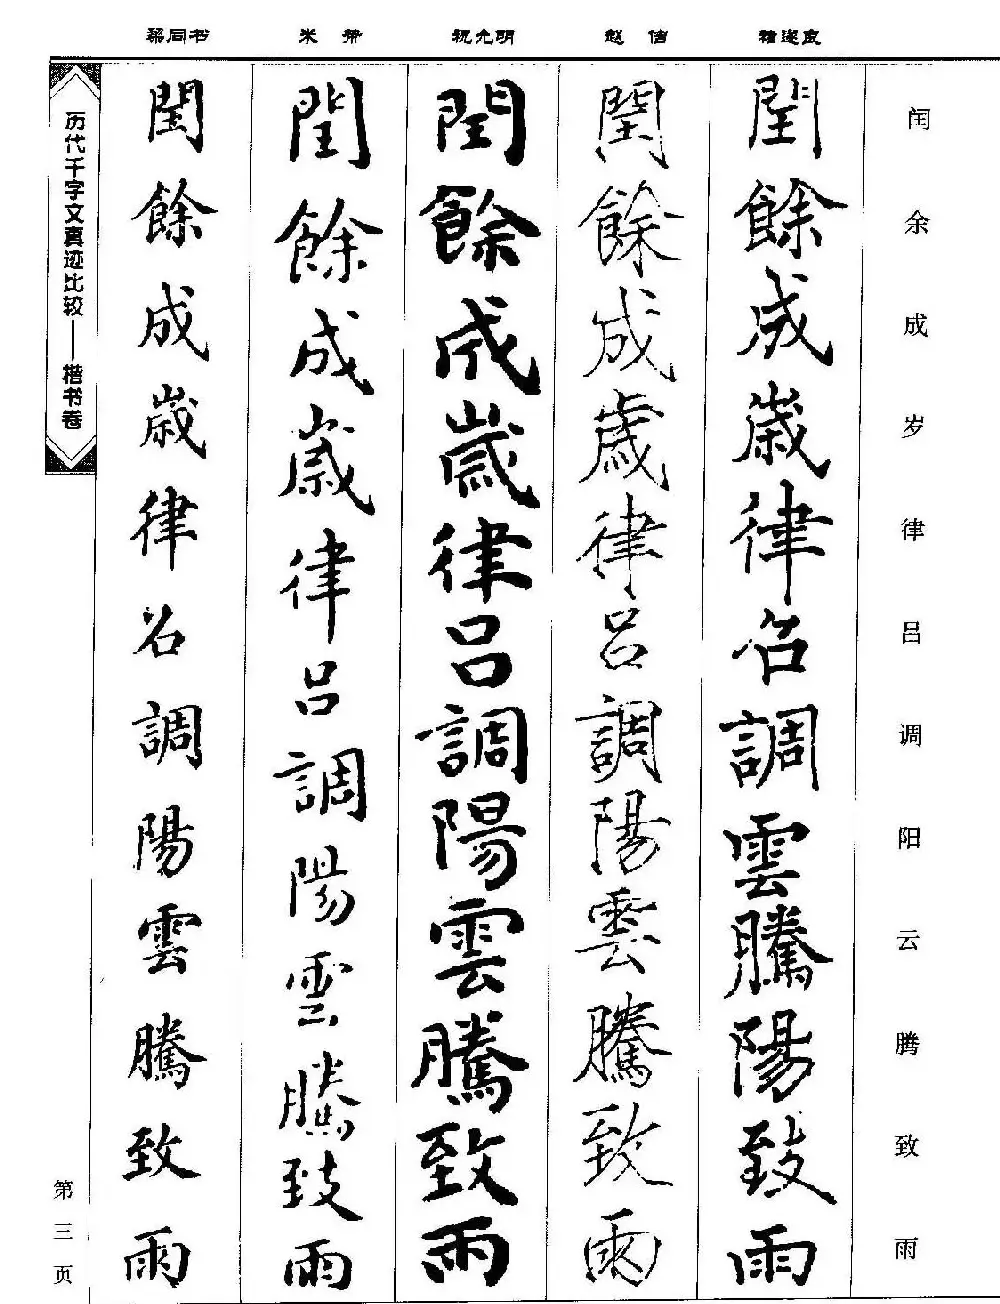 梁同书 米芾 祝允明 赵佶 褚遂良
闰余成岁律吕调阳云腾致雨
閏餘成歲律呂調雲騰陽致雨
閏餘成歲律呂調陽雲騰致雨
閏餘成歲律呂調陽雲騰致雨
閏餘成歲律呂調陽雲騰致雨
閏餘成歲律呂調陽雲騰致雨
历代千字文真迹比较——楷书卷
第三页